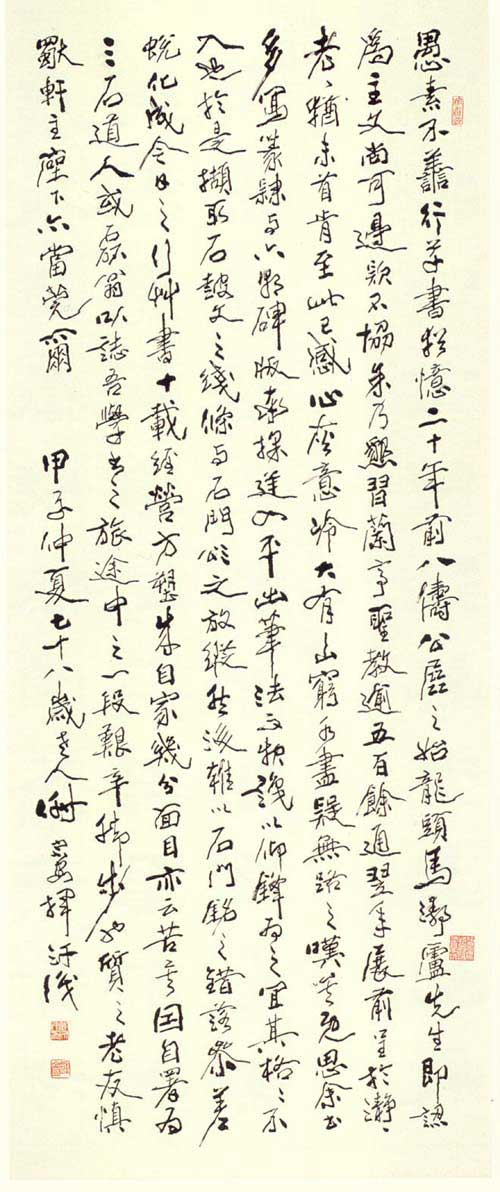 愚素不善行草書猶憶二十年前八儔公展之始龍頭馬廬先生即認
為主文尚可邊款不協余乃懇習蘭亭聖教逾五百餘通翌年展前呈於瀞〻
老〻猶未首肯至此已感心灰意冷大有山窮水盡疑無路之嘆既思余書
多寫篆隸與六朝碑版進以平出筆法又以側鋒為之宜其格〻不
入也於是擷取石鼓文之綫條與石門頌之放縱然後雜以石門銘之錯落參差
蛻化成今日之行艸書十載經營方塑成自家幾分面目亦云苦矣因自署為
三石道人或磊翁以誌吾學書之旅途中之一段艱辛腳步也質之老友慎
軒主陛下亦當莞爾 甲子仲夏七十八歲老人揮汗